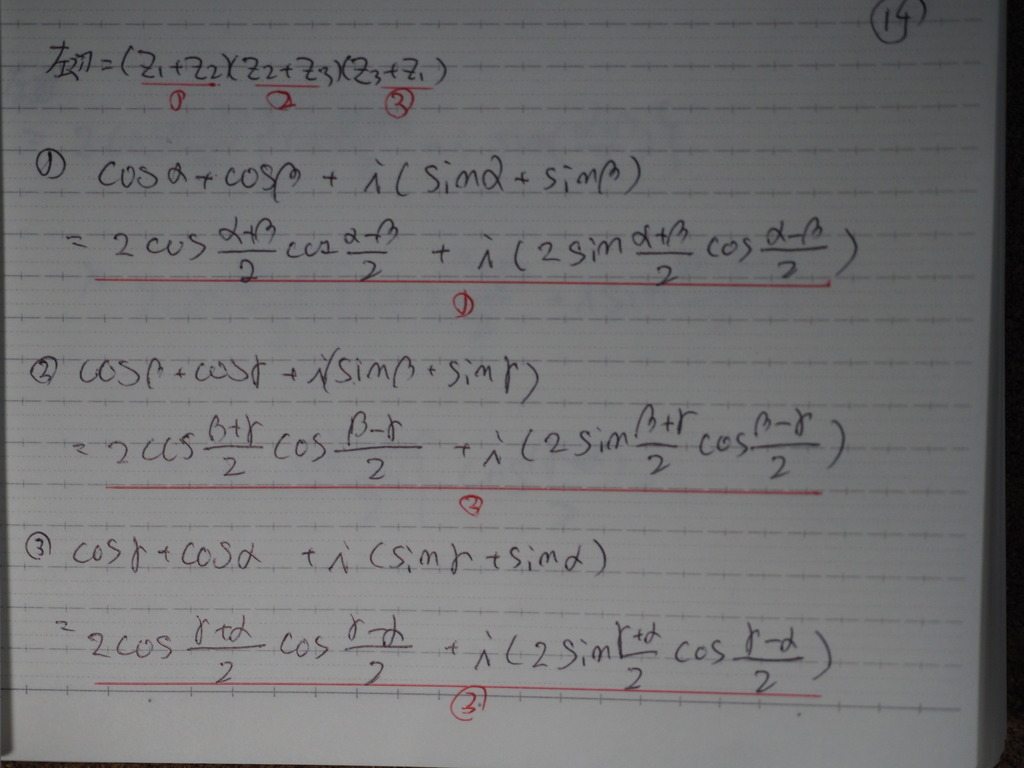 ⑭
左辺=(Z₁+Z₂)(Z₂+Z₃)(Z₃+Z₁)
① ② ③
① cosα+cosβ + i(sinα+sinβ)
= 2cos (α+β)/2 cos (α-β)/2 + i(2sin (α+β)/2 cos (α-β)/2)
①
② cosβ+cosγ + i(sinβ+sinγ)
= 2cos (β+γ)/2 cos (β-γ)/2 + i(2sin (β+γ)/2 cos (β-γ)/2)
②
③ cosγ+cosα + i(sinγ+sinα)
= 2cos (γ+α)/2 cos (γ-α)/2 + i(2sin (γ+α)/2 cos (γ-α)/2)
③